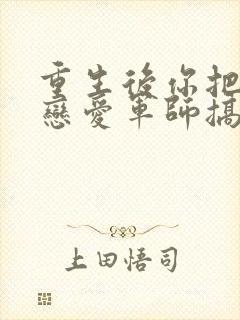 重生後你把
戀愛軍師搞
上田悟司